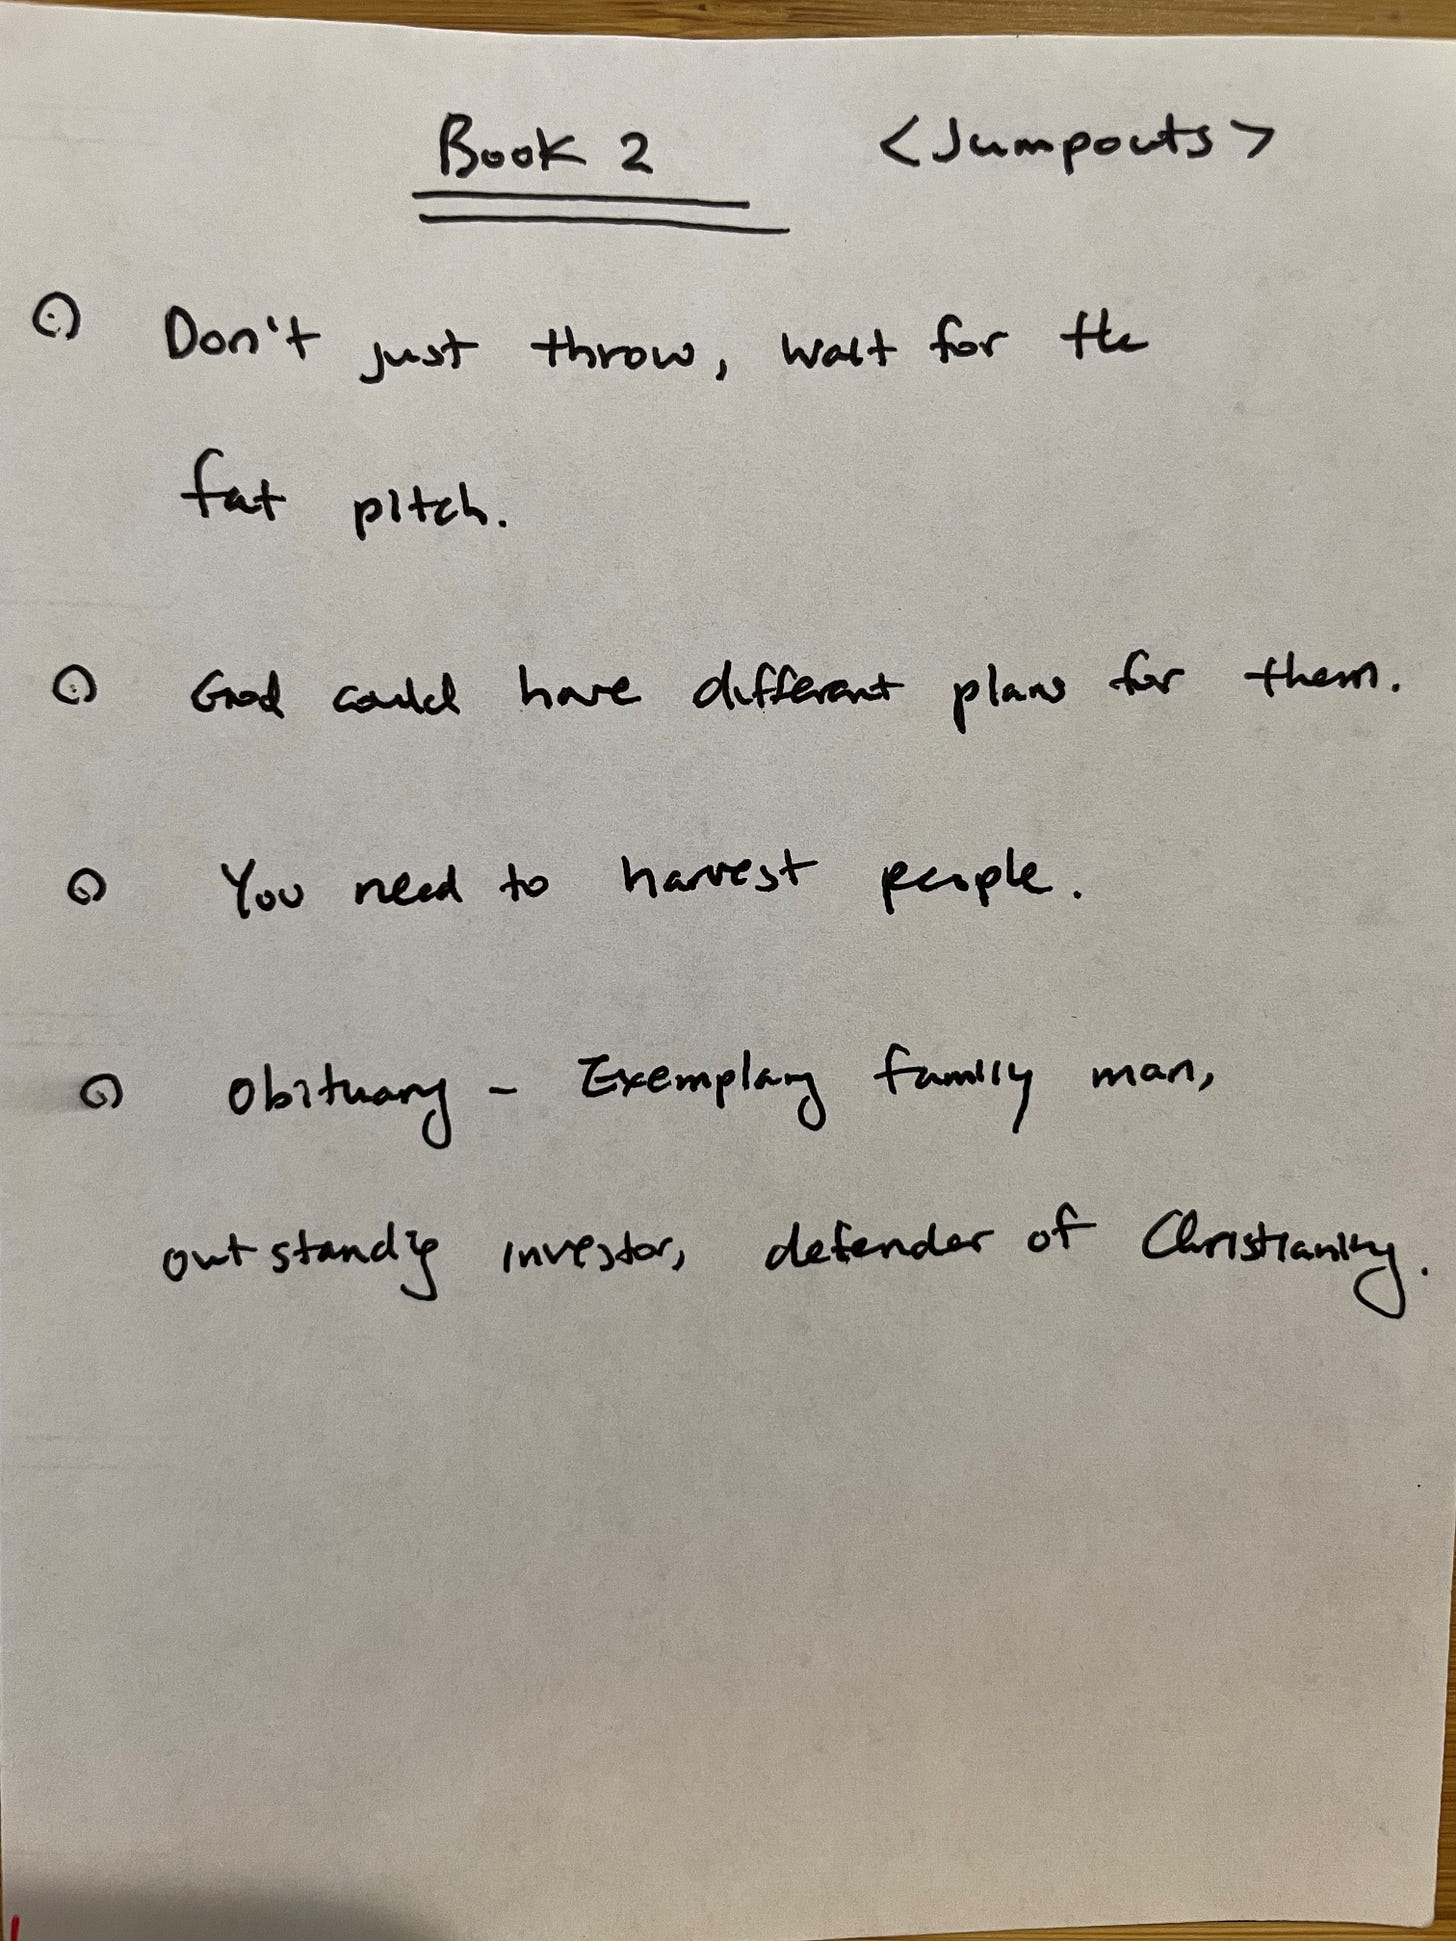 Book 2 <Jumpouts>
Don't just throw, wait for the
fat pitch.
God could have different plans for them.
You need to harvest people.
Obituary - Exemplary family man,
outstanding investor, defender of Christianity.